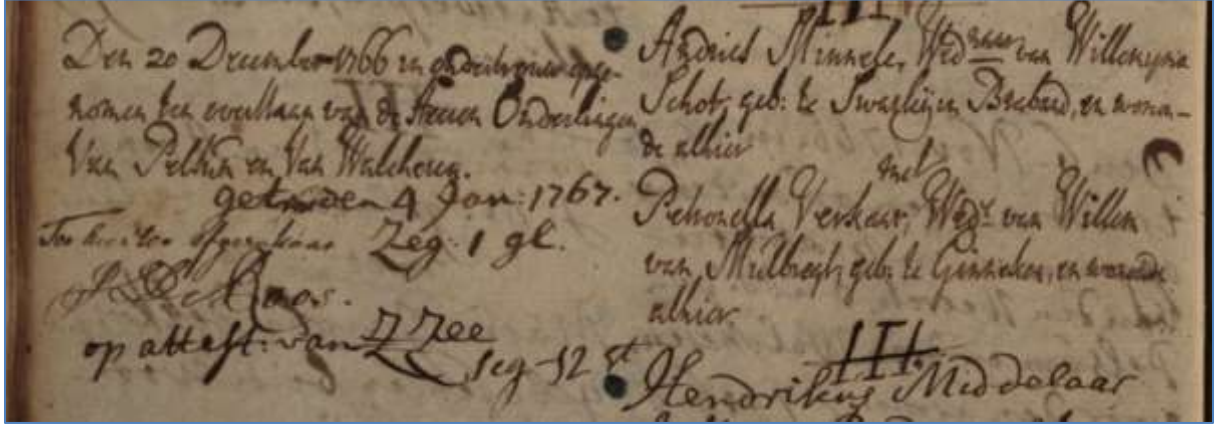 Den 20 December 1766 in ondertrouw opge-
nomen ten overstaan van de Heeren Ouderlingen
Van Pelt en Van Walcheren.
getrouden 4 Jan: 1767.
Zeg: 1 gl.
op attest: van Z Zee
seg-12 st
III
Andries Minnele, Wednaar van Willemyna
Schot, geb: te in Braband, en wonen-
de alhier
met
Petronella Verkaar, Wede van Willem
van Mulbregt, geb: te Ginneken, en wonende
alhier
III
Hendrikus Middelaar